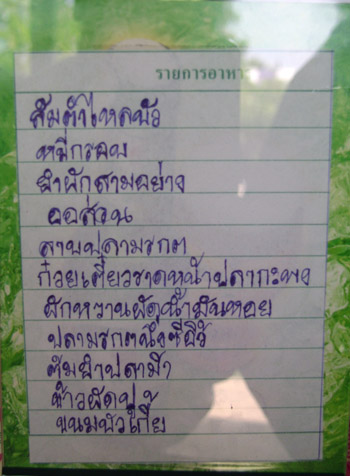 รายการอาหาร
ส้มตำไหลบัว
หมี่กรอบ
ยำผักสามอย่าง
ออส่วน
ลาบปลามรกต
ก๋วยเตี๋ยวราดหน้าปลากะพง
ผักหวานผัดน้ำมันหอย
ปลามรกตนึ่งซีอิ้ว
ต้มยำปลาม้า
ข้าวผัดปู
ขนมบัวเกี๋ย